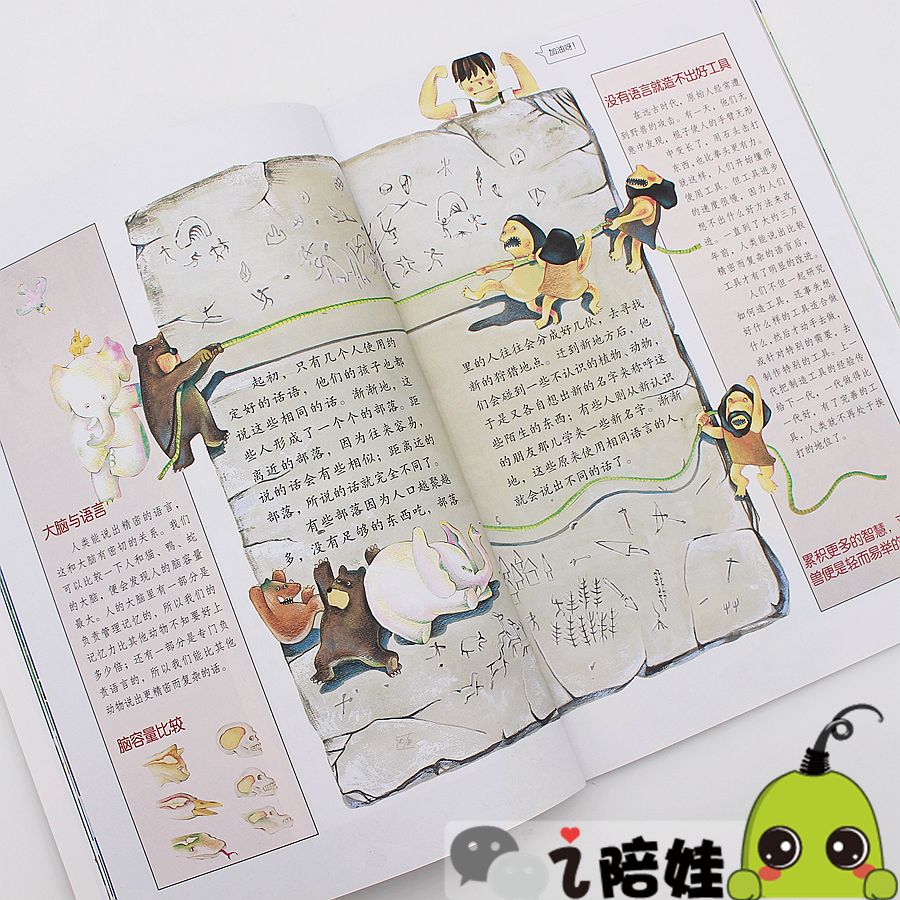 加油呀！
没有语言就造不出好工具
在远古时代，原始人经常遭
到野兽的攻击。有一天，他们无
意中发现，棍子使人的手臂无形
中变长了，用石头击打
东西，也比拳头更有力。
就这样，人们开始懂得
使用工具。但工具进步
的速度很慢，因为人们
想不出什么好方法来改
进。一直到了大约三万
年前，人类能说出比较
精密而复杂的语言后，
工具才有了明显的改进。
人们不但一起研究
如何造工具，还事先想
好什么样的工具适合做
什么，然后才动手去做，
或针对特别的需要，去
制作特别的工具。上一
代把制造工具的经验传
给下一代，一代做得比
一代好，有了完善的工
具，人类就不再处于挨
打的地位了。
累积更多的智慧，
曾便是轻而易举的
起初，只有几个人使用约
定好的话语，他们的孩子也都
说这些相同的话。渐渐地，这
些人形成了一个个的部落。距
离近的部落，因为往来容易，
说的话会有些相似；距离远的
部落，所说的话就完全不同了。
有些部落因为人口越聚越
多，没有足够的东西吃，部落
里的人往往会分成好几伙，去寻找
新的狩猎地点。迁到新地方后，他
们会碰到一些不认识的植物、动物，
于是又各自想出新的名字来称呼这
些陌生的东西；有些人则从新认识
的朋友那儿学来一些新名字。渐渐
地，这些原来使用相同语言的人，
就会说出不同的话了。
大脑与语言
人类能说出精密的语言，
这和大脑有密切的关系。我们
可以比较一下人和猫、鸭、蛇
的大脑，便会发现人的脑容量
最大。人的大脑里有一部分是
负责管理记忆的，所以我们的
记忆力比其他动物不知要好上
多少倍；还有一部分是专门负
责语言的，所以我们能比其他
动物说出更精密而复杂的话。
脑容量比较
i陪娃